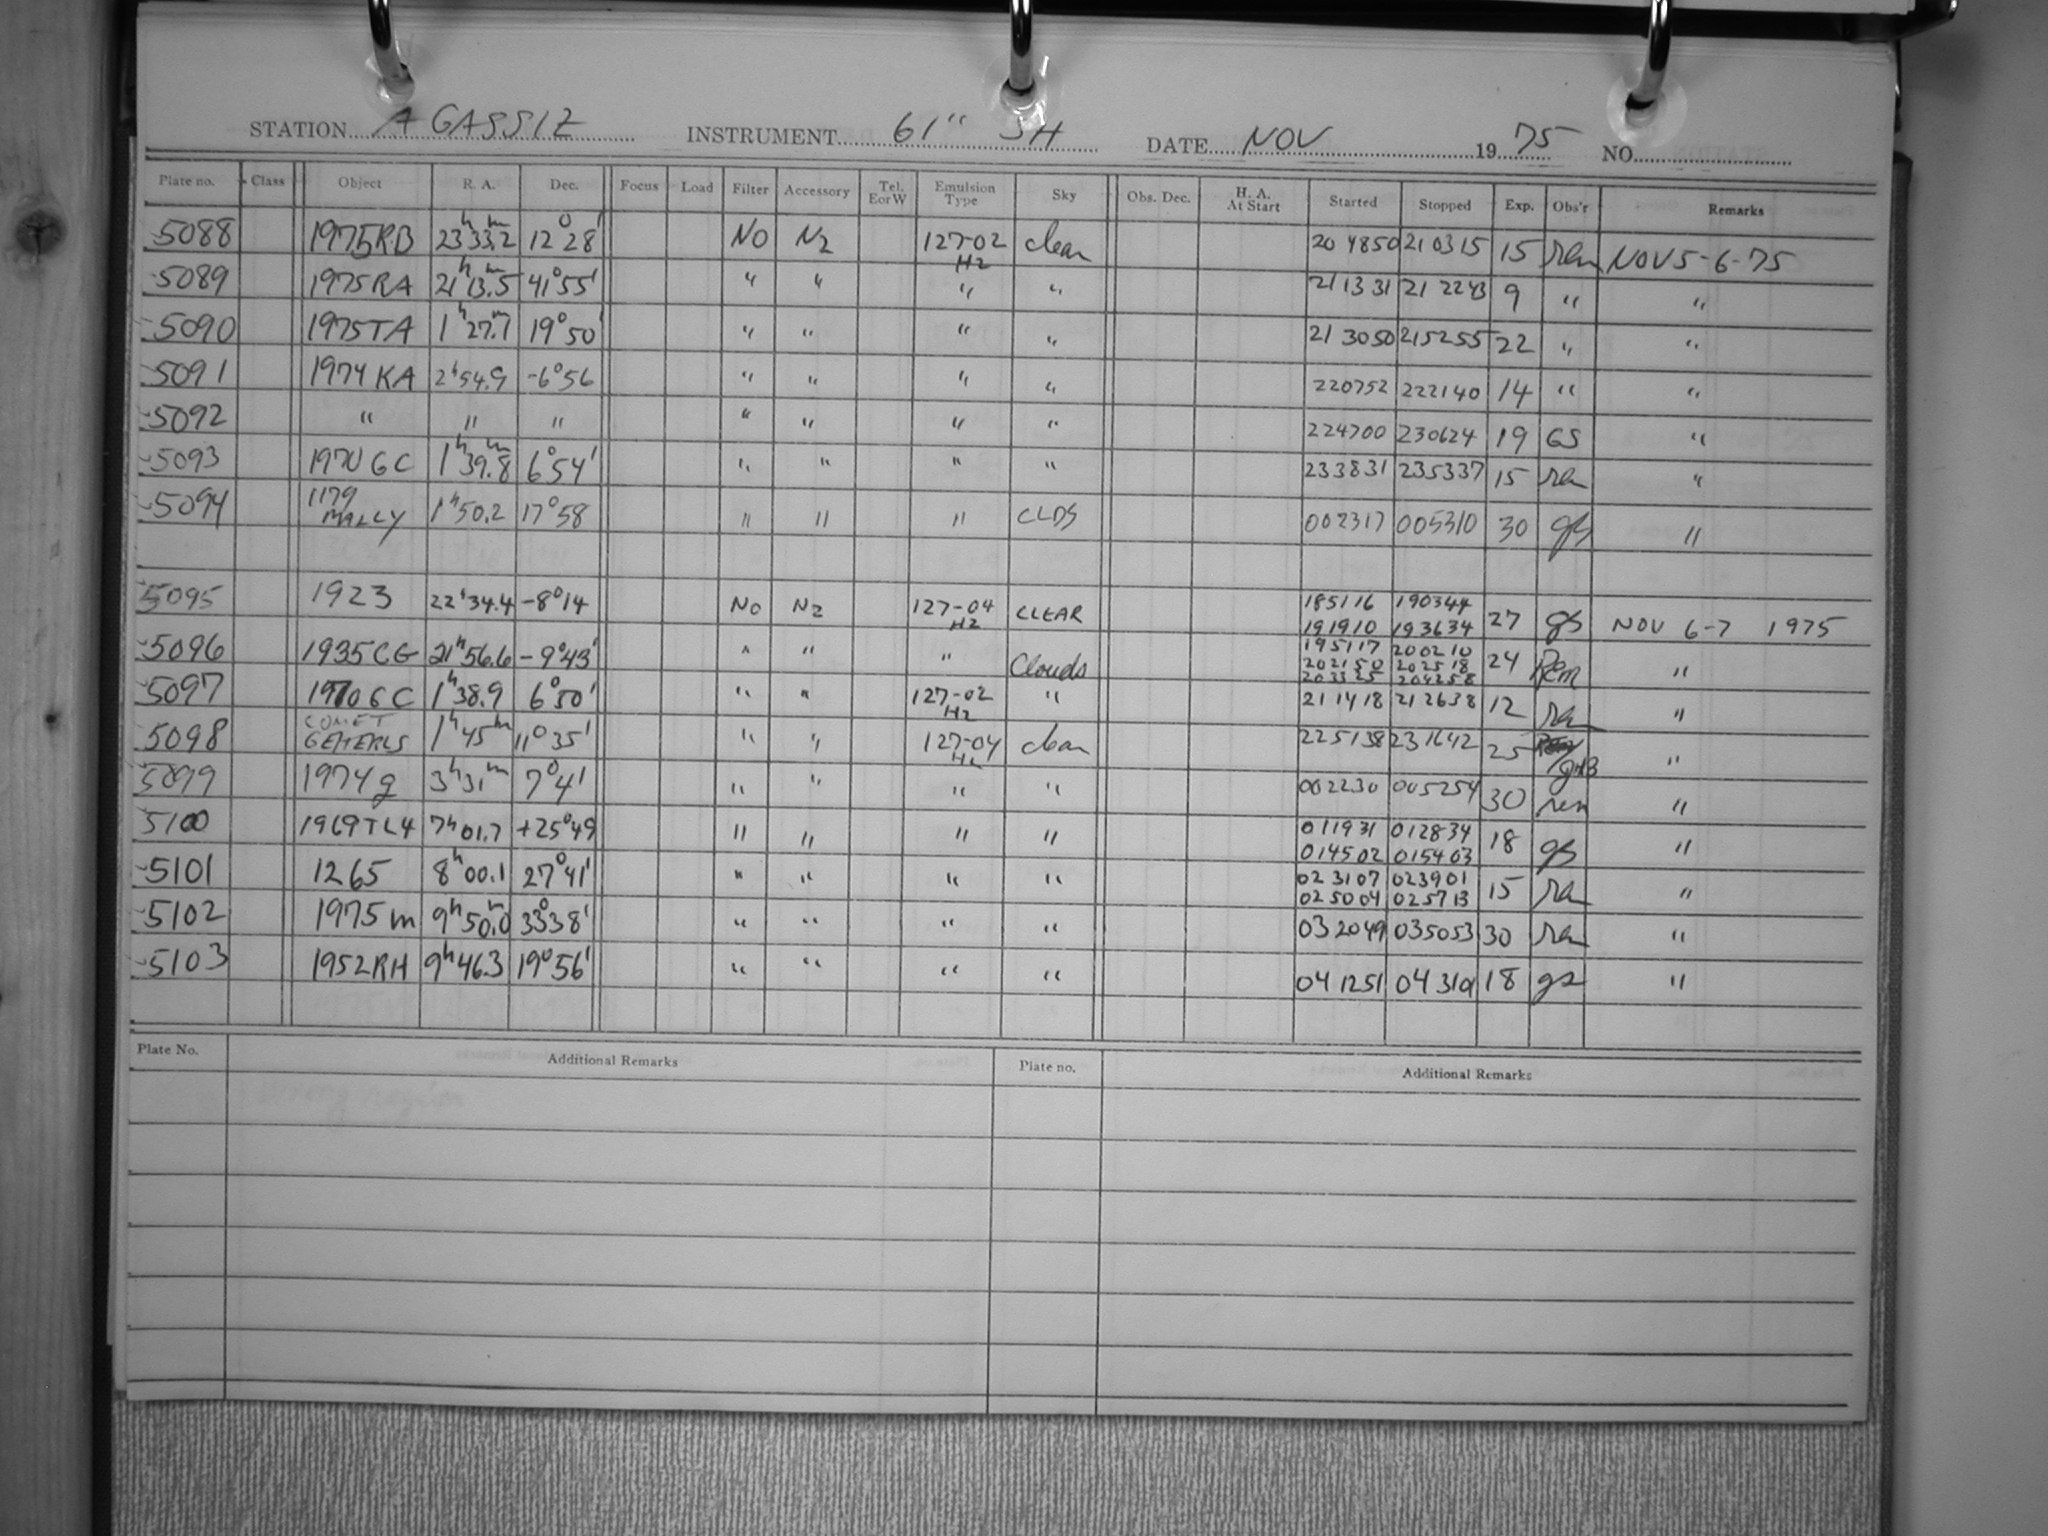 STATION AGASSIZ INSTRUMENT 61" SH DATE NOV 1975 NO.
Plate no. Class Object R. A. Dec. Focus Load Filter Accessory Tel. E or W Emulsion Type Sky Obs. Dec. H. A. At Start Started Stopped Exp. Obs'r Remarks
5088 1975RB 23h33.2m 12°28' NO N2 127-02 H2 clear 204850 210315 15 rem NOV 5-6-75
5089 1975RA 21h13.5m 41°55' " " " " 211331 212243 9 " "
5090 1975TA 1h27.7m 19°50' " " " " 213050 215255 22 " "
5091 1974KA 2h54.9 -6°56 " " " " 220752 222140 14 " "
5092 " " " " " " " 224700 230624 19 GS "
5093 1970GC 1h39.8m 6°54' " " " " 233831 235337 15 rem "
5094 1179 MALLY 1h50.2 17°58 " " " CLDS 002317 005310 30 gs "
5095 1923 22h34.4 -8°14 NO N2 127-04 H2 CLEAR 185116 190344 27 gs NOV 6-7 1975
191910 193634
5096 1935CG 21h56.6 -9°43' " " " Clouds 195117 200210 24 Rem "
202150 202518
203325 204258
5097 1970GC 1h38.9 6°50' " " 127-02 H2 " 211418 212638 12 rem "
5098 COMET GEHERLS 1h45m 11°35' " " 127-04 H2 clear 225138 231642 25 "
5099 1974g 3h31m 7°41' " " " " 002230 005254 30 rem "
5100 1969TL4 7h01.7 +25°49 " " " " 011931 012834 18 gs "
014502 015403
5101 1265 8h00.1 27°41' " " " " 023107 023901 15 rem "
025004 025713
5102 1975m 9h50.0m 33°38' " " " " 032049 035053 30 rem "
5103 1952RH 9h46.3 19°56' " " " " 041251 18 gs "
Plate No. Additional Remarks Plate no. Additional Remarks